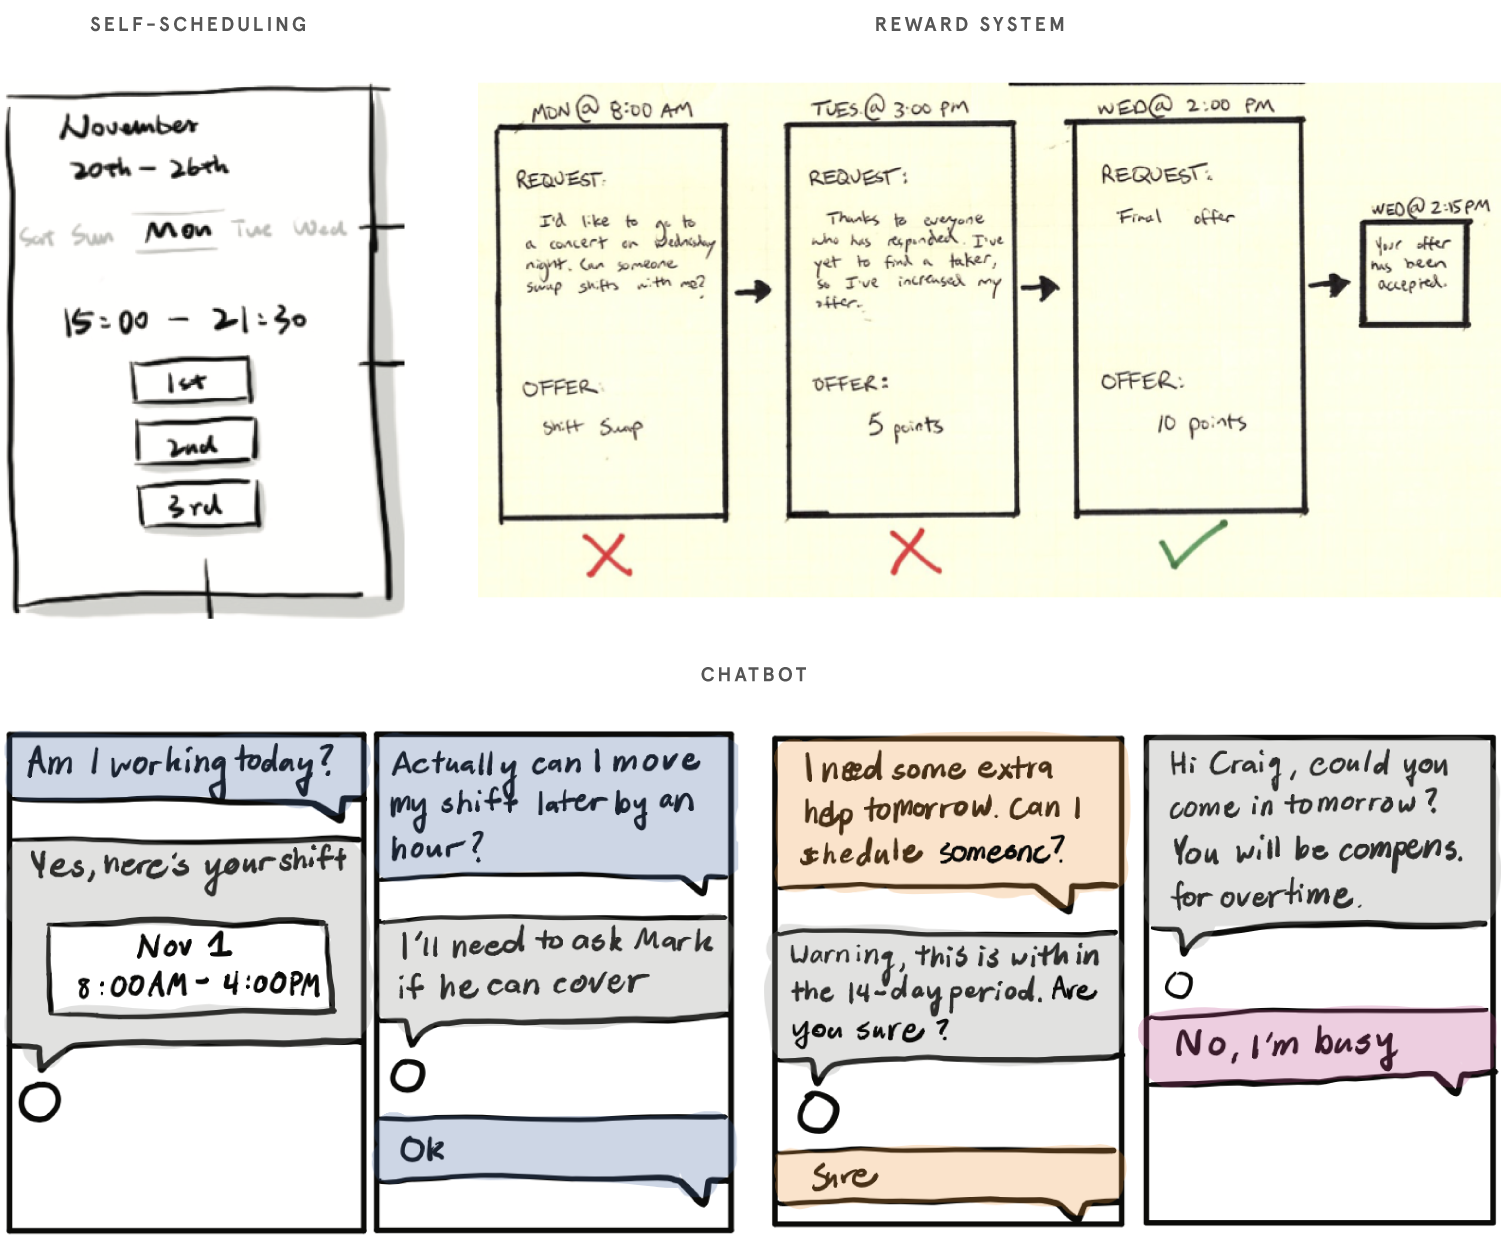 SELF-SCHEDULING
November
20th - 26th
Sat Sun Mon Tue Wed
15:00 - 21:30
1st
2nd
3rd
REWARD SYSTEM
MON @ 8:00 AM
REQUEST:
I'd like to go to
a concert on Wednesday
night. Can someone
swap shifts with me?
OFFER:
Shift Swap
TUES. @ 3:00 PM
REQUEST:
Thanks to everyone
who has responded. I've
yet to find a taker,
so I've increased my
offer.
OFFER:
5 points
WED @ 2:00 PM
REQUEST:
Final offer
OFFER:
10 points
WED @ 2:15 PM
Your offer
has been
accepted.
CHATBOT
Am I working today?
Yes, here's your shift
Nov 1
8:00AM - 4:00PM
Actually can I move
my shift later by an
hour?
I'll need to ask Mark
if he can cover
Ok
I need some extra
help tomorrow. Can I
shedule someone?
Warning, this is with in
the 14-day period. Are
you sure?
Sure
Hi Craig, could you
come in tomorrow?
You will be compens.
for overtime.
No, I'm busy